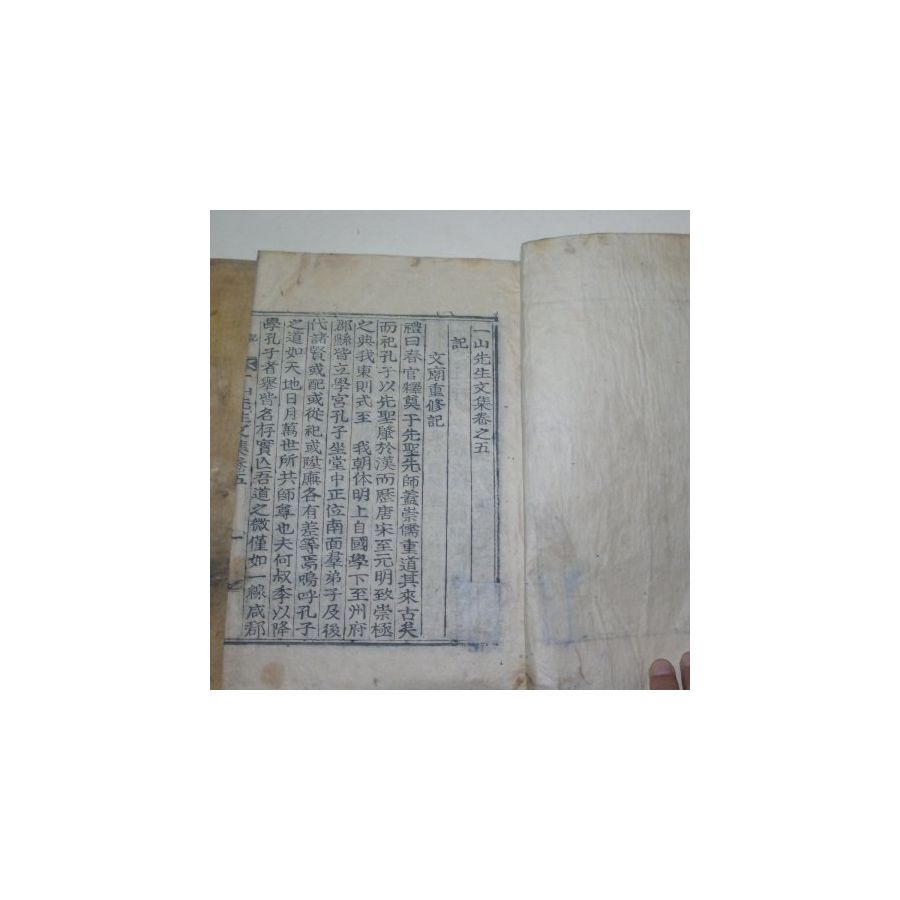 一山先生文集卷之五
記
文廟重修記
禮曰春官釋奠于先聖先師蓋崇儒重道其來古矣
而祀孔子以先聖肇於漢而歷唐宋至元明致崇極
之典我東則式至 我朝休明上自國學下至州府
郡縣皆立學宮孔子坐堂中正位南面羣弟子及後
代諸賢或配或從祀或陞廡各有差等焉嗚呼孔子
之道如天地日月萬世所共師尊也夫何叔季以降
學孔子者擧皆名存實亾吾道之微僅如一線咸郡
記 一山先生文集卷五 一